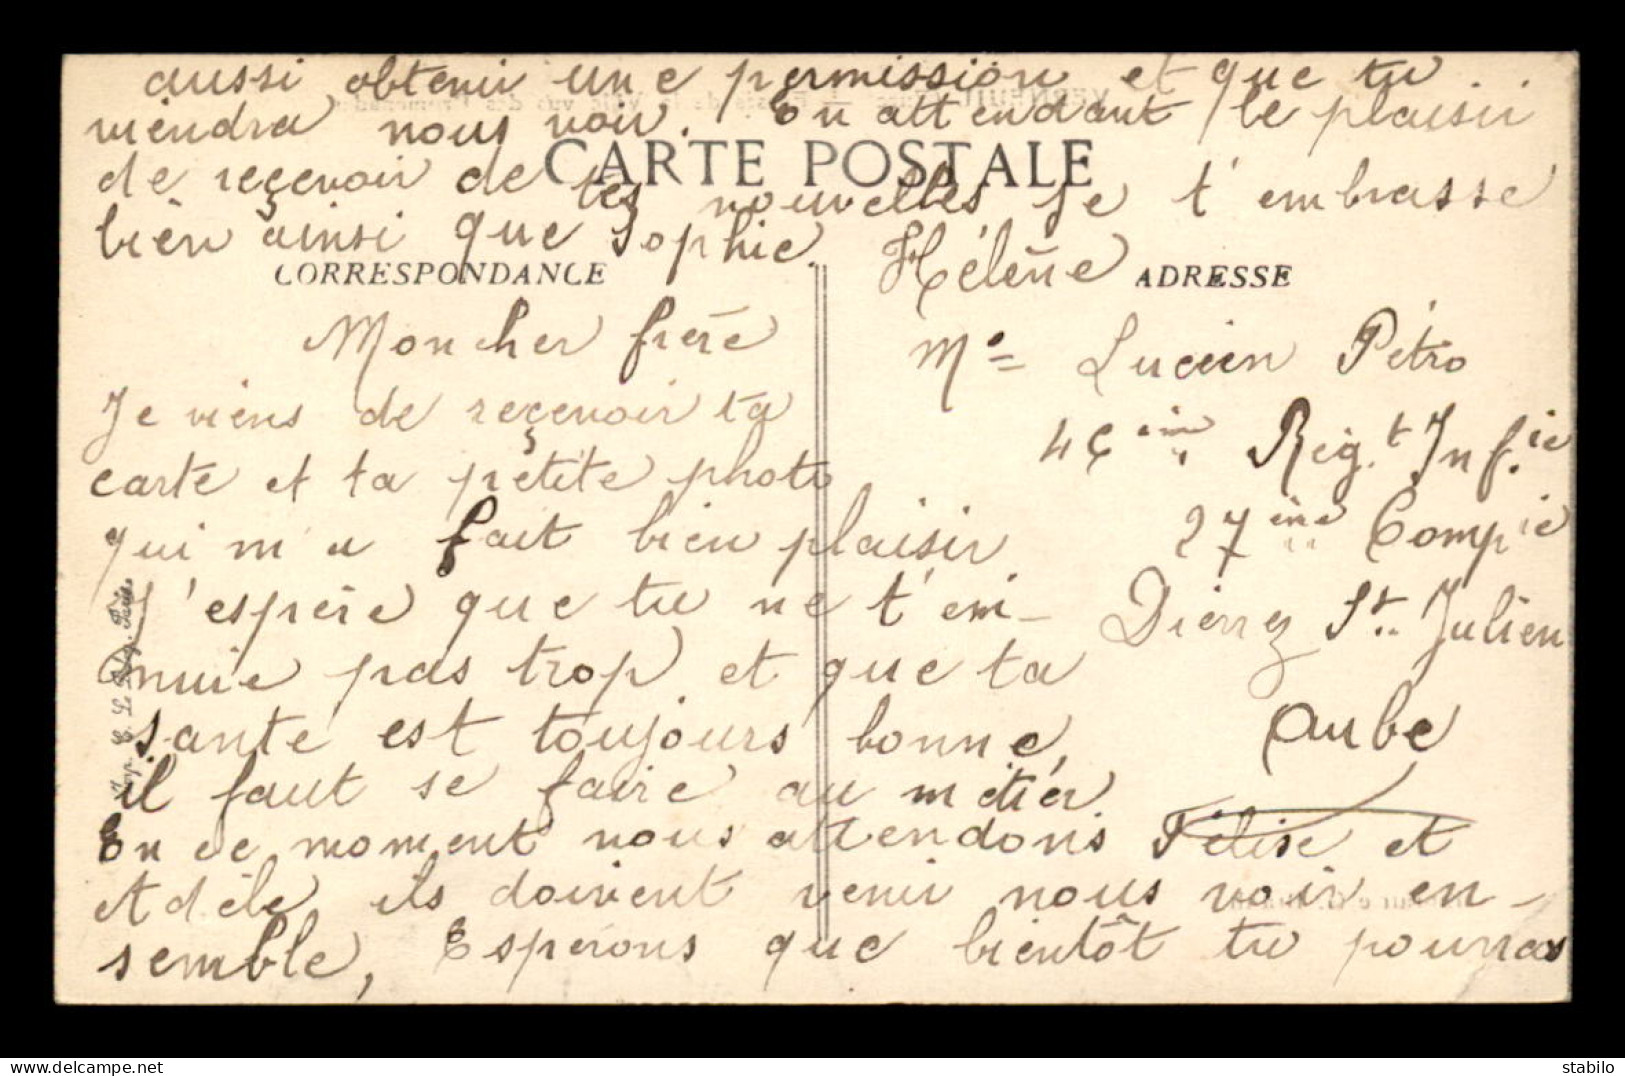 aussi obtenir une permission et que tu . .
viendra nous voir. En attendant le plaisir
CARTE POSTALE
de reçevoir de tes nouvelles je t'embrasse
bien ainsi que Sophie. Hélène
CORRESPONDANCE
ADRESSE
Mon cher frère
Je viens de reçevoir ta
carte et ta petite photo
qui m'a fait bien plaisir
j'espère que tu ne t'en-
nuie pas trop et que ta
santé est toujours bonne,
il faut se faire au métier.
En ce moment nous attendons Félise et
Adèle ils doivent venir nous voir en-
semble, Esperons que bientôt tu pourras
Mr Lucien Pétro
46ème Rég.t Inf.ie
27ème Compie
Dierrey St. Julien
Aube
Imp. E. Le Deley, Paris
delcampe.net
stofbolas